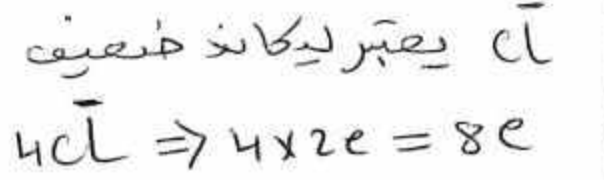 Cl⁻ يعتبر ليكاند ضعيف
4Cl⁻ ⇒ 4x2e = 8e